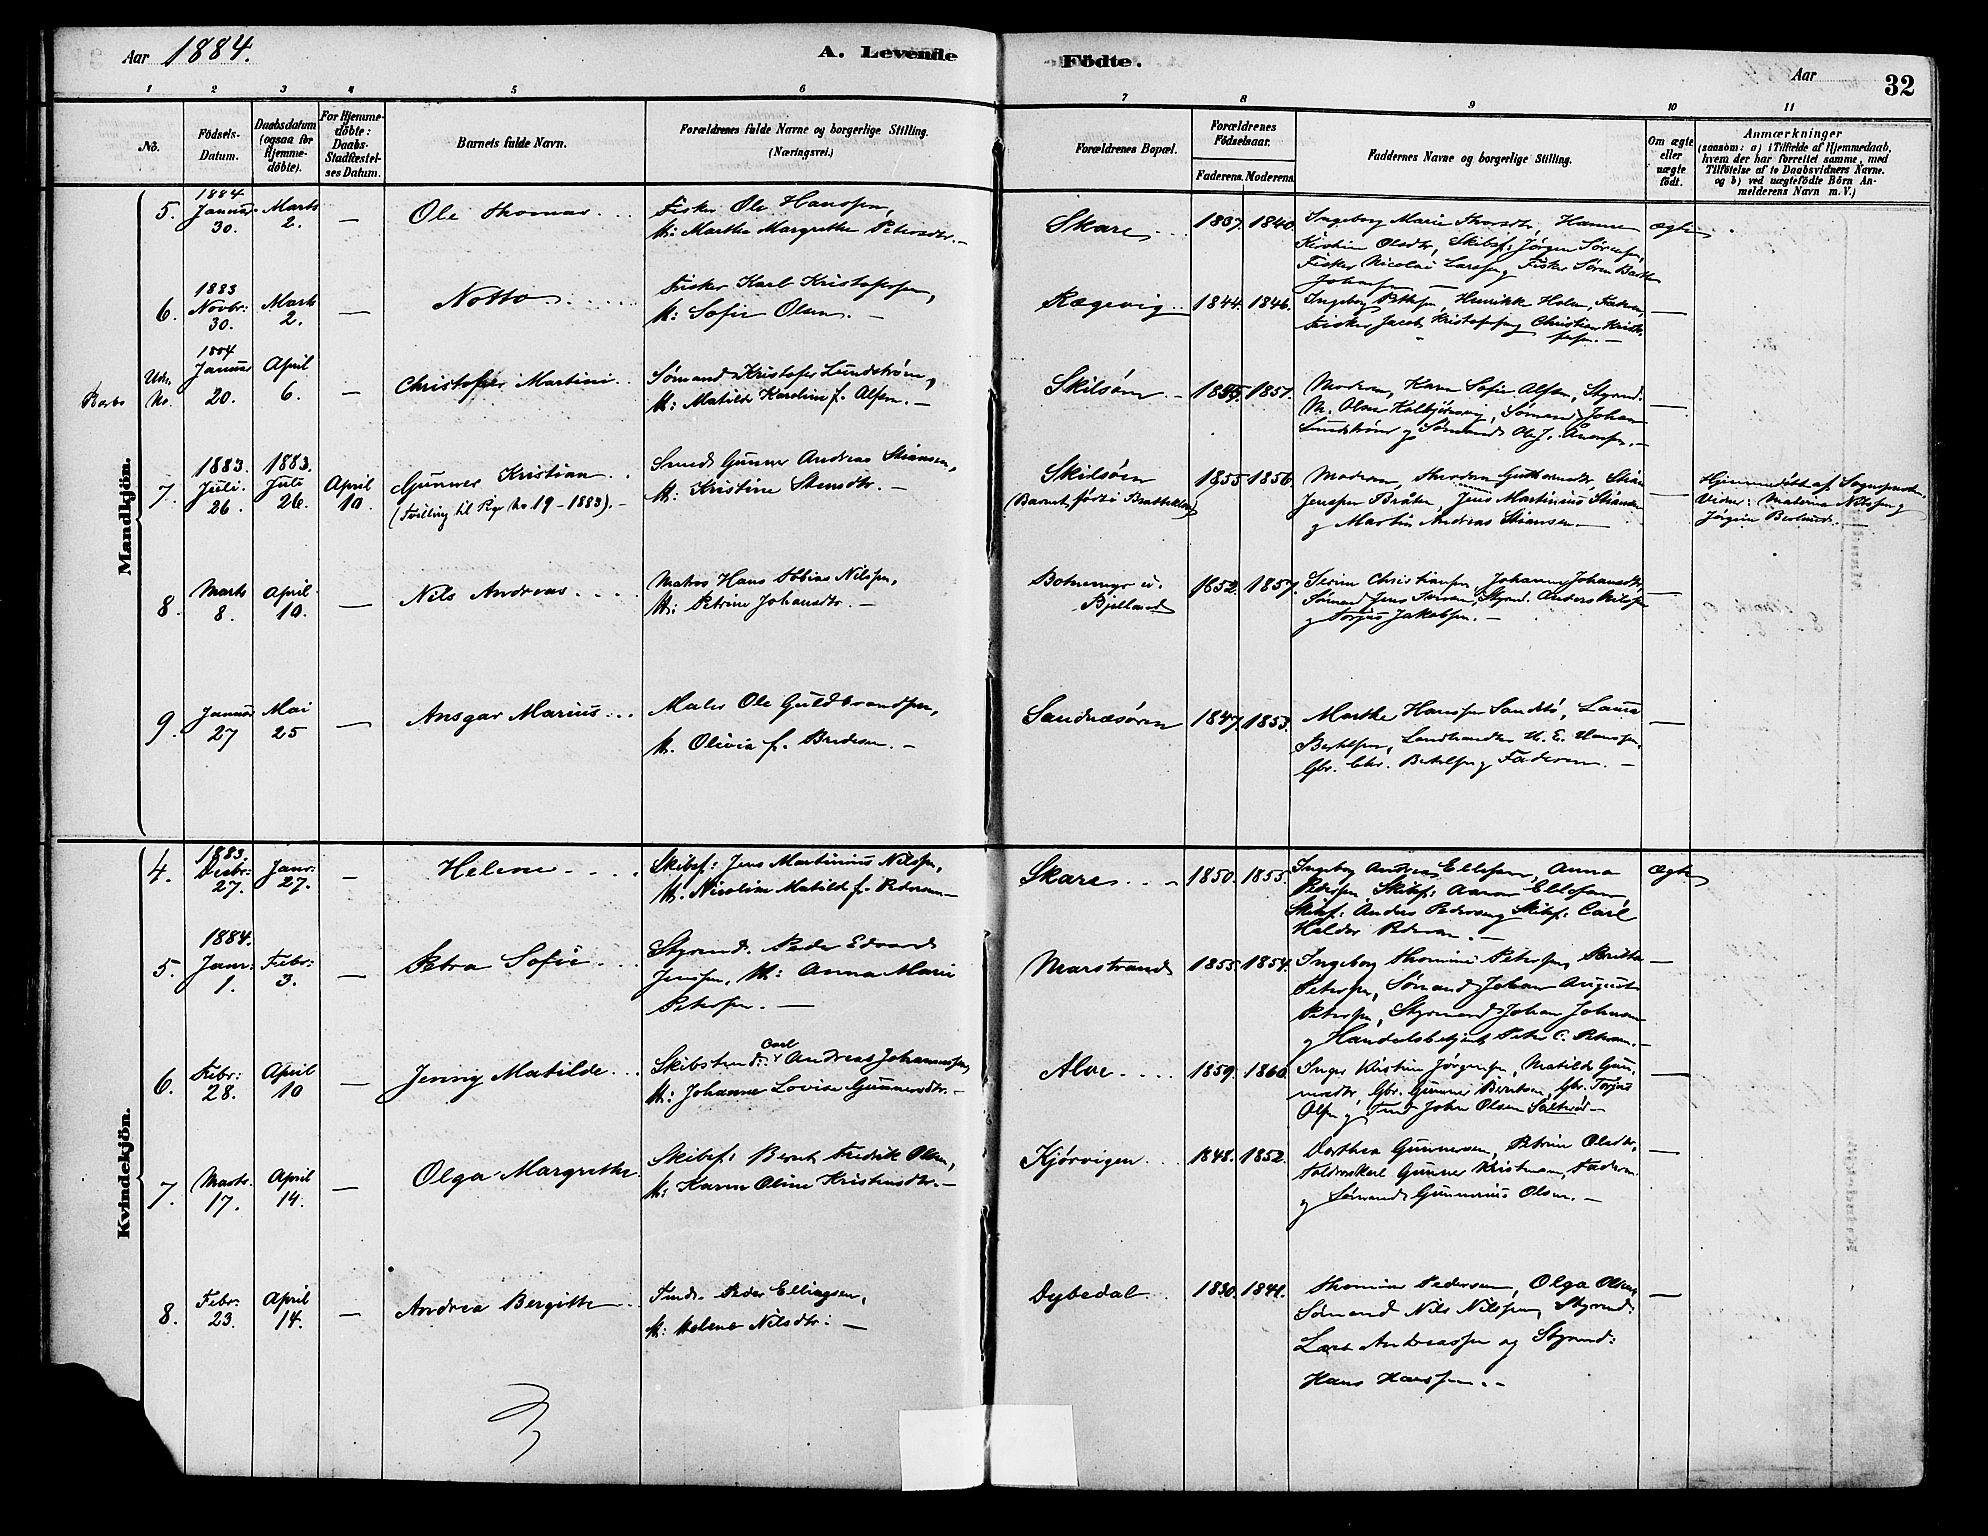 Aar 1884.
A. Levende Födte.
Aar
32
1 2 3 4 5 6 7 8 9 10 11
No.
Födsels-Datum.
Daabsdatum (ogsaa for Hjemme-döbte).
For Hjemme-döbte: Daabs-Stadfæstel-ses Datum.
Barnets fulde Navn.
Forældrenes fulde Navne og borgerlige Stilling. (Næringsvei.)
Forældrenes Bopæl.
Forældrenes Födselsaar.
Faderens. Moderens.
Faddernes Navne og borgerlige Stilling.
Om ægte eller uægte födt.
Anmærkninger
(saasom: a) i Tilfælde af Hjemmedaab,
hvem der har forrettet samme, med
Tilföielse af to Daabsvidners Navne.
og b) ved uægtefödte Börn An-
melderens Navn m. V.)
Mandkjön.
5. 1884 Januar 30. Marts 2. — Ole Thomas
Fisker Ole Hanssen,
M: Martha Margrethe Petersdtr. —
Skare 1837. 1840.
Ingeborg Marie Hanne
Kirstin Olsdtr, Skibsf: Jörgen Sörensen,
Fisker Nicolai Larssen og Fisker Sören
Johnsen —
ægte
6. 1883 Novbr: 30. Marts 2. — Notto
Fisker Karl Kristofersen,
M: Sofie Olsen. —
Rægevig 1844. 1846.
Ingeborg Henrikke Holm,
Fisker Jacob Kristofersen og Christian
—
Udr. No. 1884 Januar 20. April 6. — Christofer Martini
Sömand Kristofer Lundström,
M: Matilde Karoline f. Alfsen. —
Skilsöen 1855. 1851.
Moderen, Karen Sofie Alfsen, Styrmd.
M. Olsen Sömand Johan
Lundström og Sömand Ole J.
—
7. 1883. Juli 26. 1883. Juli 26. April 10. Gunner Kristian
(Tvilling til Reg No 19 – 1883). —
Smed Gunner Andreas
M: Kristine Stensdtr. —
Skilsöen
(Barnet född i
1855 1856
Moderen,
Jensen Bråten, Jens Martinius
og Martin Andreas —
—
Hjemmedöbt af
Vidner: Nilssen og
Jörgine
8. Marts 8. April 10. — Nils Andreas
Matros Hans Tobias Nilssen,
M: Petrine Johansdtr. —
Bjelland
1852. 1857.
Serine Christiansen, Johanne Johansdtr,
Sömand Jens Styrmd. Anders Nilssen
og Torjus Jakobsen. —
—
9. Januar 27 Mai 25 — Ansgar Marius
Maler Ole Guldbrandsen,
M. Olivia f. Bredesen. —
Sandnæsören 1847. 1853.
Marthe Hanssen Sandtö, Laura
Bertelsen, Landhandler H. E. Hanssen,
Gbr. Chr. Bertelsen og Faderen. —
—
Kvindekjön.
4. 1883. Decbr: 27. Janr: 27. — Helene
Skibsf: Jens Martinius Nilssen,
M. Nicoline Matilde f. Pedersen —
Skare 1850. 1855.
Ingeborg Andrea Ellefsen, Anna
Pederssen Skibsf: Aanon Ellefsen
Skibsf: Anders Pedersen og Skibsf: Carl
Halder Pedersen. —
Ægte
5. 1884. Janr: 1. Febr: 3. — Petra Sofie
Styrmd. Peder Edvard
Jenssen, M: Anna Marie
Peterssen. —
Marstrand 1855. 1854.
Ingeborg Thomine Peterssen,
Peterssen, Sömand Johan August
Peterssen, Styrmand Johan Johnsen
og Handelsbetjent Peter C. Petersen. —
—
6. Febr: 28. April 10 — Jenny Matilde
Carl Andreas Johannessen,
M: Johanne Lovise Gunnersdtr. —
Alve 1859. 1860.
Inger Kirstin Jörgensen, Matilde Gun-
nersdtr, Gbr. Gunner Berntsen, Gbr. Torjus
Olsen og John Olsen Saltröd —
—
7. Marts 17. April 14. — Olga Margrethe
Skibsf: Bernt Fredrik Olsen,
M: Karen Oline Kristensdtr. —
Kjörvigen 1848. 1852.
Dorthea Gunnersen, Petrine Olsdtr,
Gunner Kristensen, Faderen
og Sömand Gunnerius Olsen. —
—
8. Febr: 23. April 14. — Andrea Bergitte
Peder Ellingsen,
M: Helene Nilsdtr: —
Dybedal 1830. 1841.
Thomine Pedersen, Olga Olsen,
Sömand Nils Nilssen, Styrmd:
Lars Andreassen og Styrmd:
Hans Hanssen. —
—